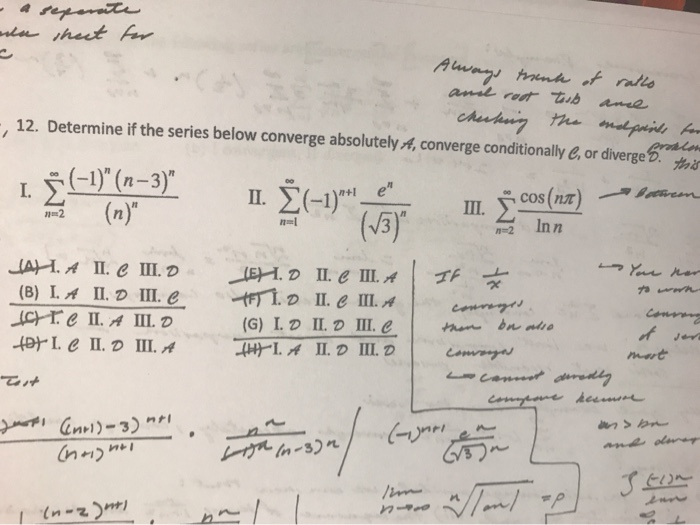 a separate
sheet for
Always think of ratio
and root tests and
checking the endpoints for
problem
this
12. Determine if the series below converge absolutely A, converge conditionally C, or diverge D.
I. ∑_{n=2}^{∞} (-1)^n (n-3)^n / (n)^n II. ∑_{n=1}^{∞} (-1)^{n+1} e^n / (√3)^n III. ∑_{n=2}^{∞} cos(nπ) / ln n → Between
(A) I. A II. C III. D (E) I. D II. C III. A
(B) I. A II. D III. C (F) I. D II. C III. A
(C) I. C II. A III. D (G) I. D II. D III. C
(D) I. C II. D III. A (H) I. A II. D III. D
If 1/x
converges
then bn also
converges
↳ cannot directly
compare because
an > bn
→ You
to work
of
most
Test
((n+1)-3)^{n+1} / (n+1)^{n+1} · n^n / (-1)^n (n-3)^n | (-1)^{n+1} e^n / (√3)^n
(n-2)^{n+1} n^n lim n→∞ ⁿ√|an| = p